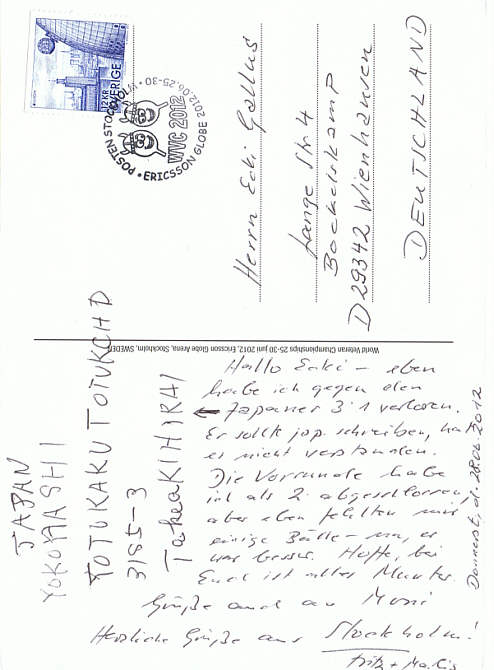 12 KR
SVERIGE
POSTEN STOCKHOLM
WVC 2012
ERICSSON GLOBE 2012.06.25-30
Herrn Ecki Gallus
Lange Str 4
Bockelskamp
D 29342 Wienhausen
DEUTSCHLAND
World Veteran Championships 25-30 juni 2012, Ericsson Globe Arena, Stockholm, SWEDEN
JAPAN
YOKOHASHI
TOTUKAKU TOTUKCHD
3185-3
TakeaKI HIRAI
Hallo Ecki – eben
habe ich gegen den
← Japaner 3:1 verloren.
Er sollte jap. schreiben, hat
es nicht verstanden.
Die Vorrunde habe
ich als 2. abgeschlossen,
aber eben fehlten mir
einige Bälle – na, er
war besser. Hoffe, bei
Euch ist alles Munter.
Grüße auch an Moni
Herzliche Grüße aus Stockholm!
Fritz +
Donnerst, d. 28.06.2012